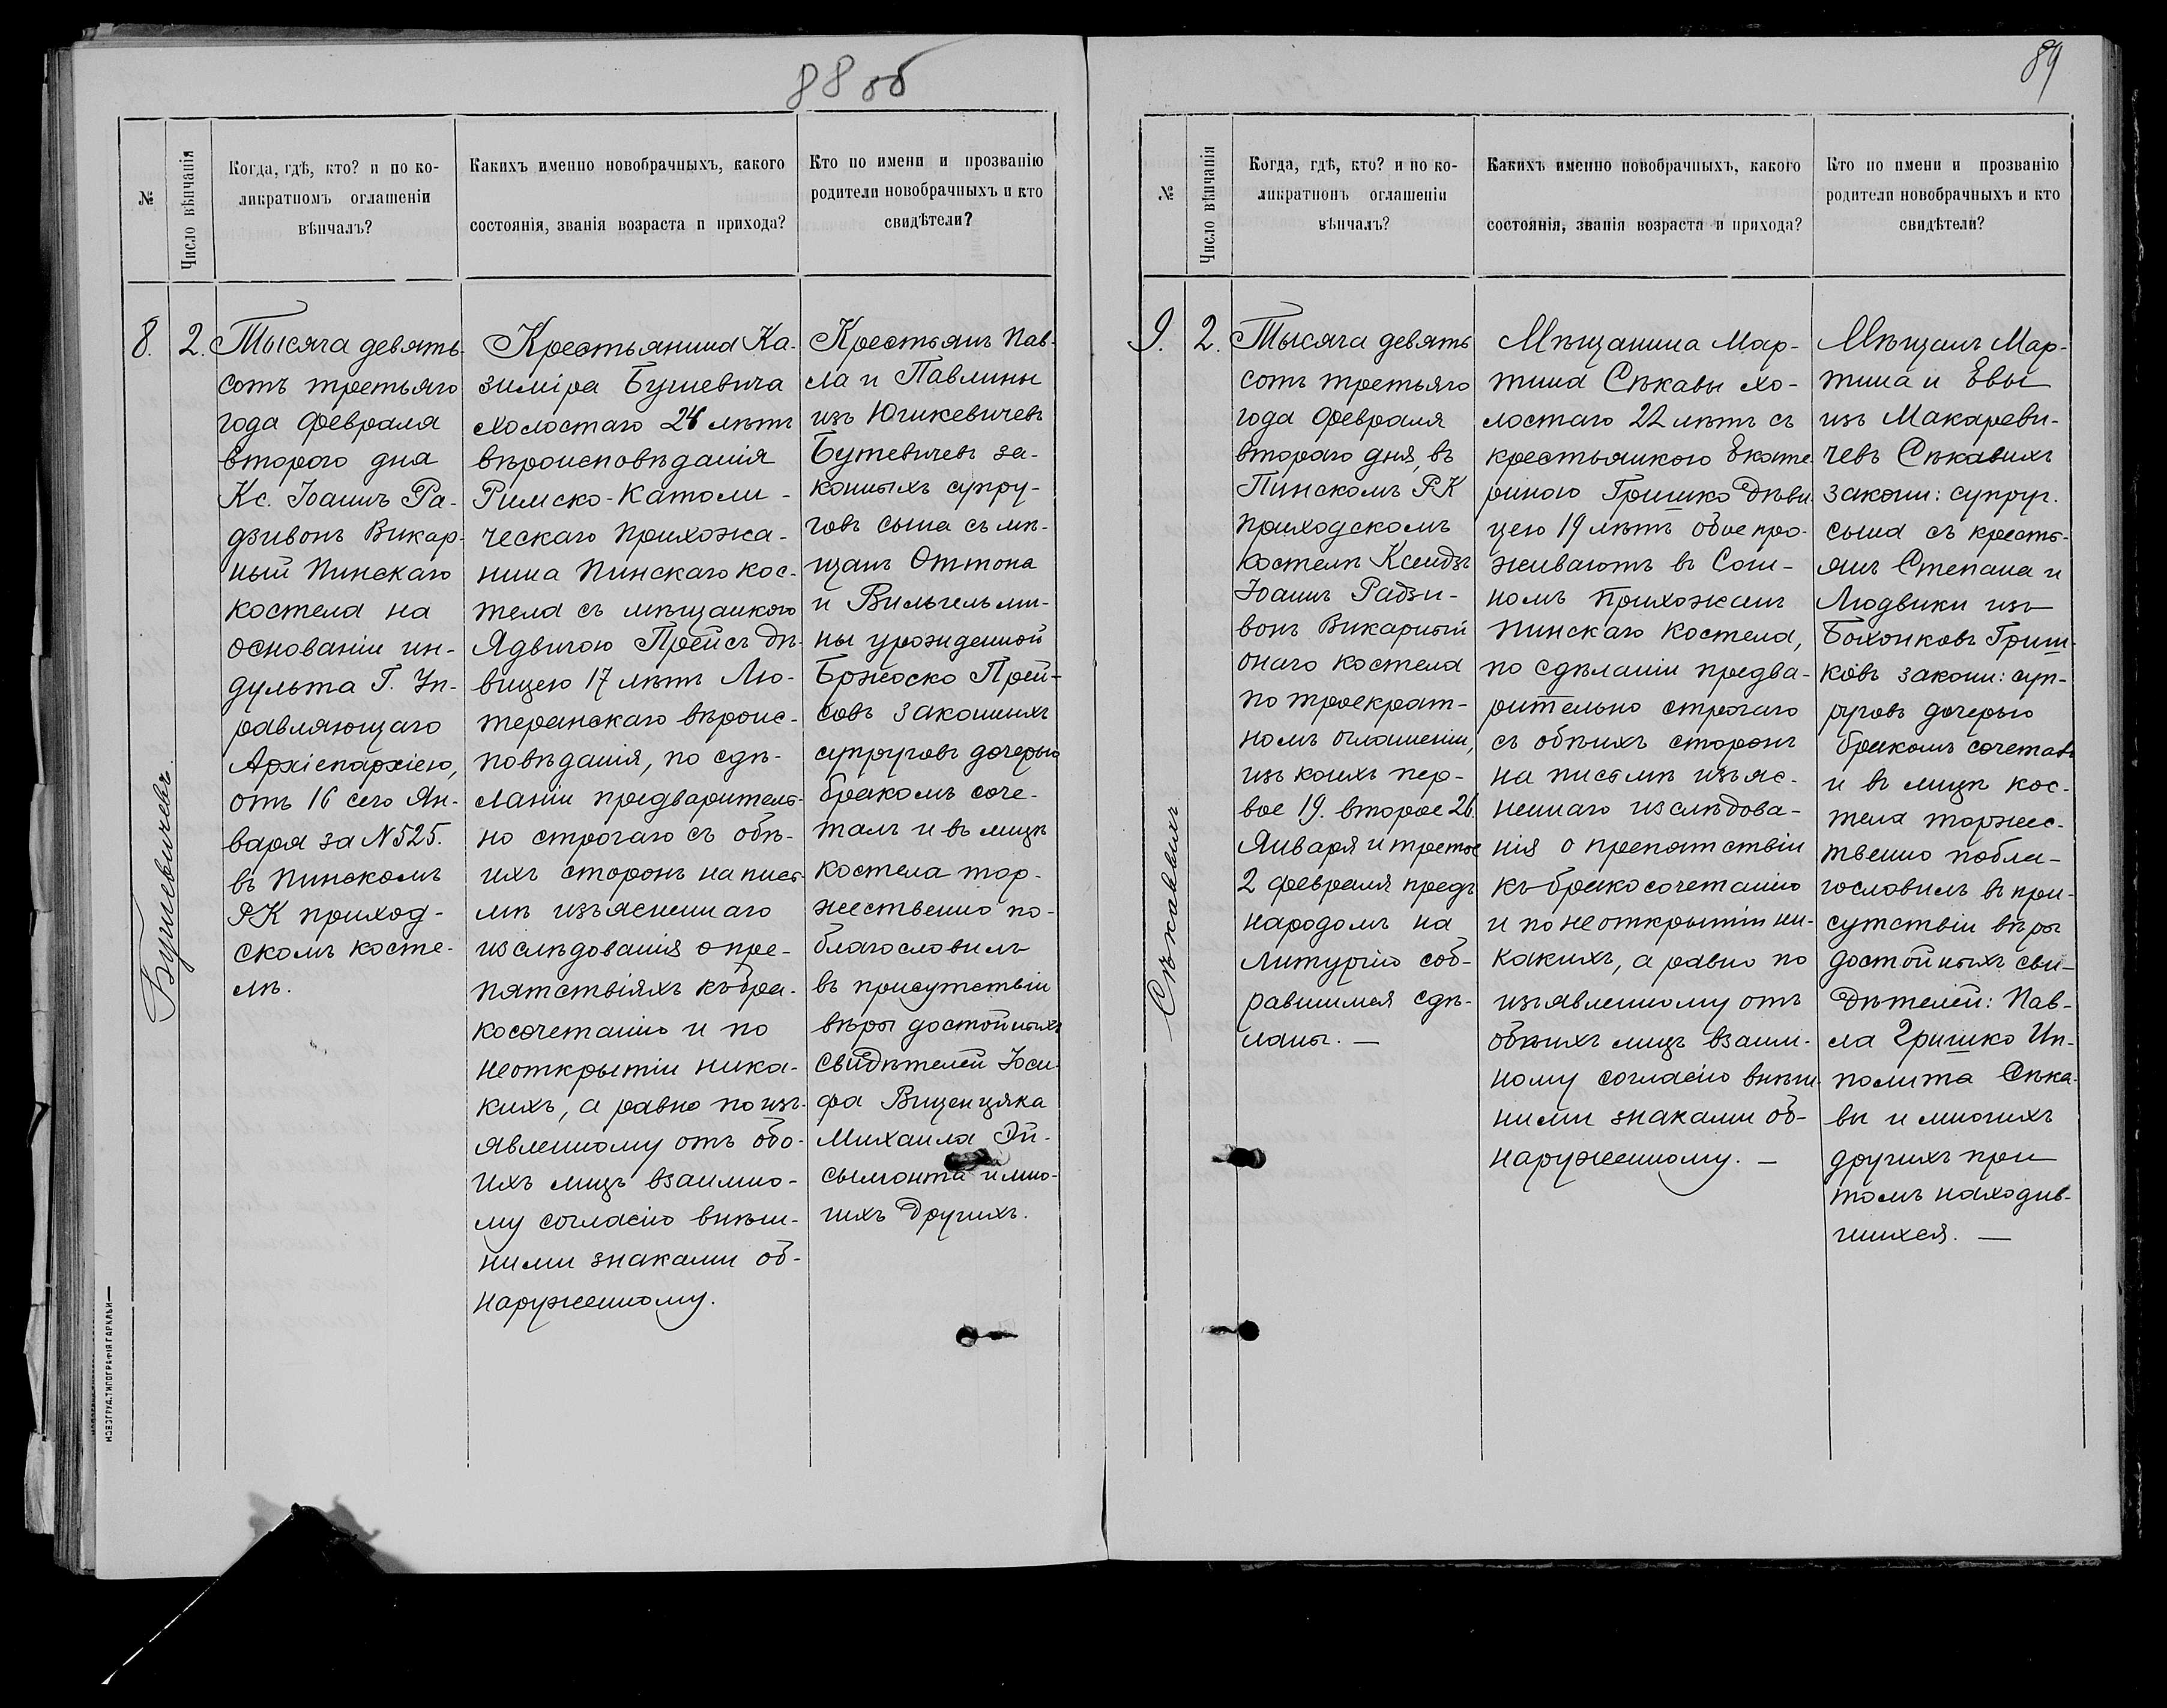 88 об
№
Число вѣнчанія
Когда, гдѣ, кто? и по ко-
ликратномъ оглашеніи
вѣнчалъ?
Какихъ именно новобрачныхъ, какого
состоянія, званія возраста и прихода?
Кто по имени и прозванію
родители новобрачныхъ и кто
свидѣтели?
8.
2.
Тысяча девять-
сотъ третьяго
года февраля
второго дня
Кс. Іоаннъ Ра-
дзивонъ Викар-
ный Пинскаго
костела на
основаніи ин-
дульта Г. Уп-
равляющаго
Архіепархіею,
отъ 16 сего Ян-
варя за N 525.
въ Пинскомъ
РК приход-
скомъ косте-
лѣ.
Крестьянина Ка-
зиміра Буневича
холостаго 24 лѣтъ
вѣроисповѣданія
Римско-Католи-
ческаго прихожа-
нина Пинскаго кос-
тела съ мѣщанкою
Ядвигою Прейсъ дѣ-
вицею 17 лѣтъ Лю-
теранскаго вѣроис-
повѣданія, по сдѣ-
ланіи предваритель-
но строгаго съ обѣ-
ихъ сторонъ на пись-
мѣ изъясненнаго
изслѣдованія о пре-
пятствіяхъ къ бра-
косочетанію и по
неоткрытіи ника-
кихъ, а равно по изъ-
явленному отъ обо-
ихъ лицъ взаимно-
му согласію внѣш-
ними знаками об-
наруженному.
Крестьянъ Пав-
ла и Павлины
изъ Югикевичевъ
Буневичевъ за-
конныхъ супру-
говъ сына съ мѣ-
щанъ Оттона
и Вильгельми-
ны урожденной
Бржоско Прей-
совъ законныхъ
супруговъ дочерью
бракомъ соче-
талъ и въ лицѣ
костела тор-
жественно по-
благословилъ
въ присутствіи
вѣры достойныхъ
свидѣтелей Іоси-
фа Виценцяка
Михаила Эй-
сымонта и мно-
гихъ другихъ.
Буневичевъ.
НОВОГРУД. ТИПОГРАФІЯ ГАРКАВИ
89
№
Число вѣнчанія
Когда, гдѣ, кто? и по ко-
ликратномъ оглашеніи
вѣнчалъ?
Какихъ именно новобрачныхъ, какого
состоянія, званія возраста и прихода?
Кто по имени и прозванію
родители новобрачныхъ и кто
свидѣтели?
9.
2.
Тысяча девять
сотъ третьяго
года февраля
второго дня, въ
Пинскомъ РК
приходскомъ
костелѣ Ксендзъ
Іоаннъ Радзи-
вонъ Викарный
онаго костела
по троекрат-
номъ оглашеніи,
изъ коихъ пер-
вое 19. второе 26.
Января и третье
2 февраля предъ
народомъ на
Литургію соб-
равшимся сдѣ-
ланы. —
Мѣщанина Мар-
тина Сѣкавы хо-
лостаго 22 лѣтъ съ
крестьянкою Екате-
риною Гришко дѣви-
цею 19 лѣтъ обое про-
живаютъ въ Сош-
номъ прихожанъ
Пинскаго костела,
по сдѣланіи предва-
рительно строгаго
съ обѣихъ сторонъ
на письмѣ изъяс-
неннаго изслѣдова-
нія о препятствіи
къ бракосочетанію
и по неоткрытіи ни-
какихъ, а равно по
изъявленному отъ
обѣихъ лицъ взаим-
ному согласію внѣш-
ними знаками об-
наруженному. —
Мѣщанъ Мар-
тина и Евы
изъ Макареви-
чевъ Сѣкавихъ
законн: супруг.
сына съ кресть-
янъ Степана и
Людвики изъ
Бохонковъ Гриш-
ковъ законн: суп-
руговъ дочерью
бракомъ сочеталъ
и въ лицѣ кос-
тела торжес-
твенно побла-
гословилъ въ при-
сутствіи вѣры
достойныхъ сви-
дѣтелей: Пав-
ла Гришко Ип-
полита Сѣка-
вы и многихъ
другихъ при
томъ находив-
шихся. —
Сѣкавихъ